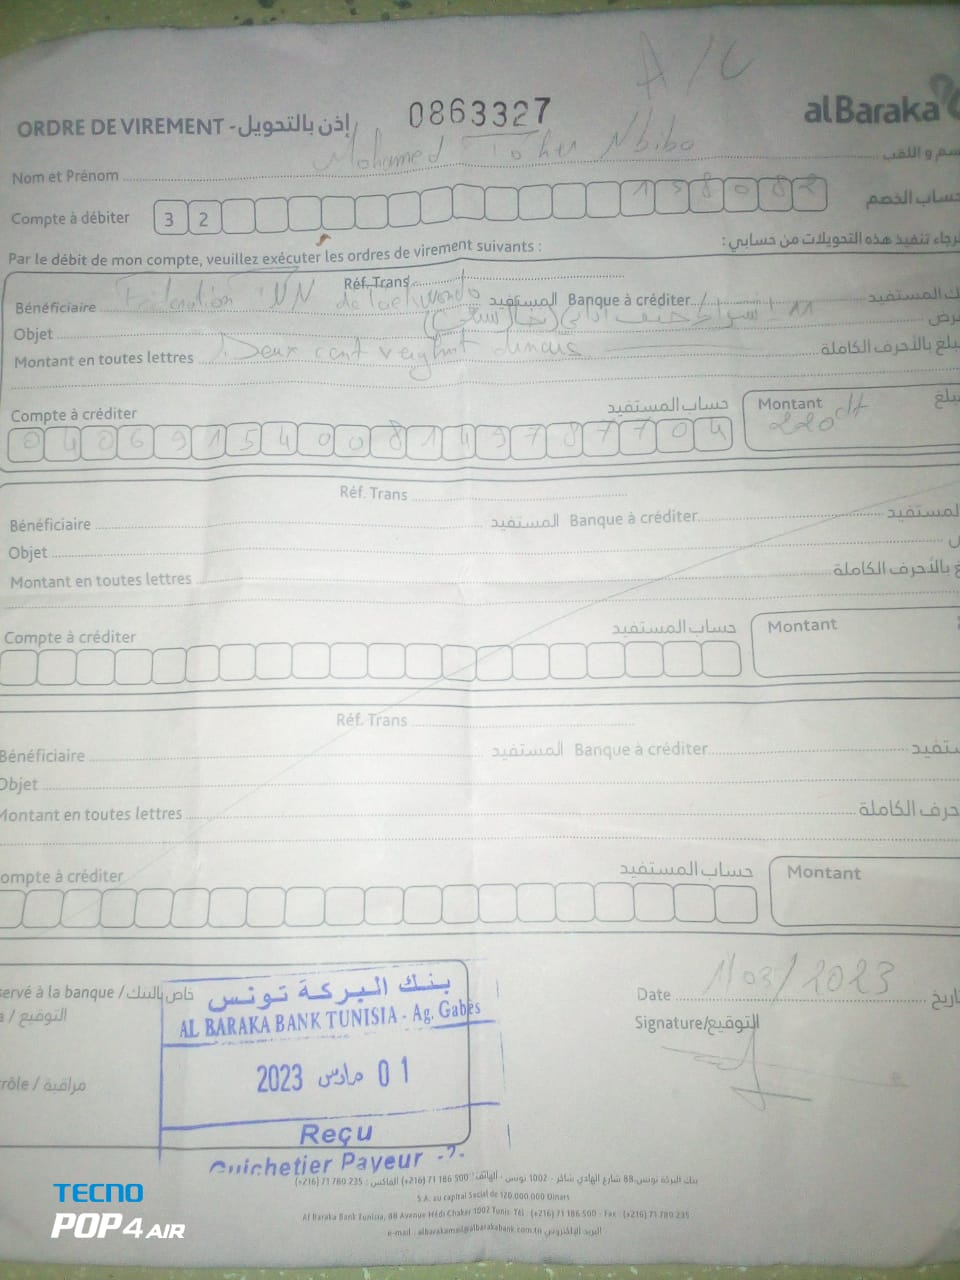 A/C
ORDRE DE VIREMENT - إذن بالتحويل 0863327 al Baraka
Nom et Prénom Mohamed Taher Nbiba سم و اللقب
Compte à débiter 3 2 1 5 8 0 8 2 حساب الخصم
Par le débit de mon compte, veuillez exécuter les ordres de virement suivants : رجاء تنفيذ هذه التحويلات من حسابي :
Réf. Trans
Bénéficiaire المستفيد Banque à créditer المستفيد
Objet 11
Montant en toutes lettres Deux cent veighnt dinars بلغ بالأحرف الكاملة
Compte à créditer حساب المستفيد Montant
0 4 0 6 9 1 5 4 0 0 8 1 4 9 7 8 7 7 0 4 220 dt
Réf. Trans
Bénéficiaire المستفيد Banque à créditer المستفيد
Objet
Montant en toutes lettres بالأحرف الكاملة
Compte à créditer حساب المستفيد Montant
Réf. Trans
Bénéficiaire المستفيد Banque à créditer ستفيد
Objet
Montant en toutes lettres حرف الكاملة
ompte à créditer حساب المستفيد Montant
servé à la banque / خاص بالبنك
/ التوقيع
rôle / مراقبة
بنك البركة تونس
AL BARAKA BANK TUNISIA - Ag. Gabès
01 مارس 2023
Reçu
Guichetier Payeur -2-
Date 1/03/2023 تاريخ
Signature/التوقيع
بنك البركة تونس 88 شارع الهادي شاكر - 1002 تونس - الهاتف: 500 186 71 (216+) الفاكس: 235 780 71 (216+)
S.A. au capital Social de 120.000.000 Dinars
Al Baraka Bank Tunisia, 88 Avenue Hédi Chaker 1002 Tunis Tél : (+216) 71 186 500 - Fax : (+216) 71 780 235
e-mail : albarakamail@albarakabank.com.tn البريد الإلكتروني
TECNO
POP 4 AIR